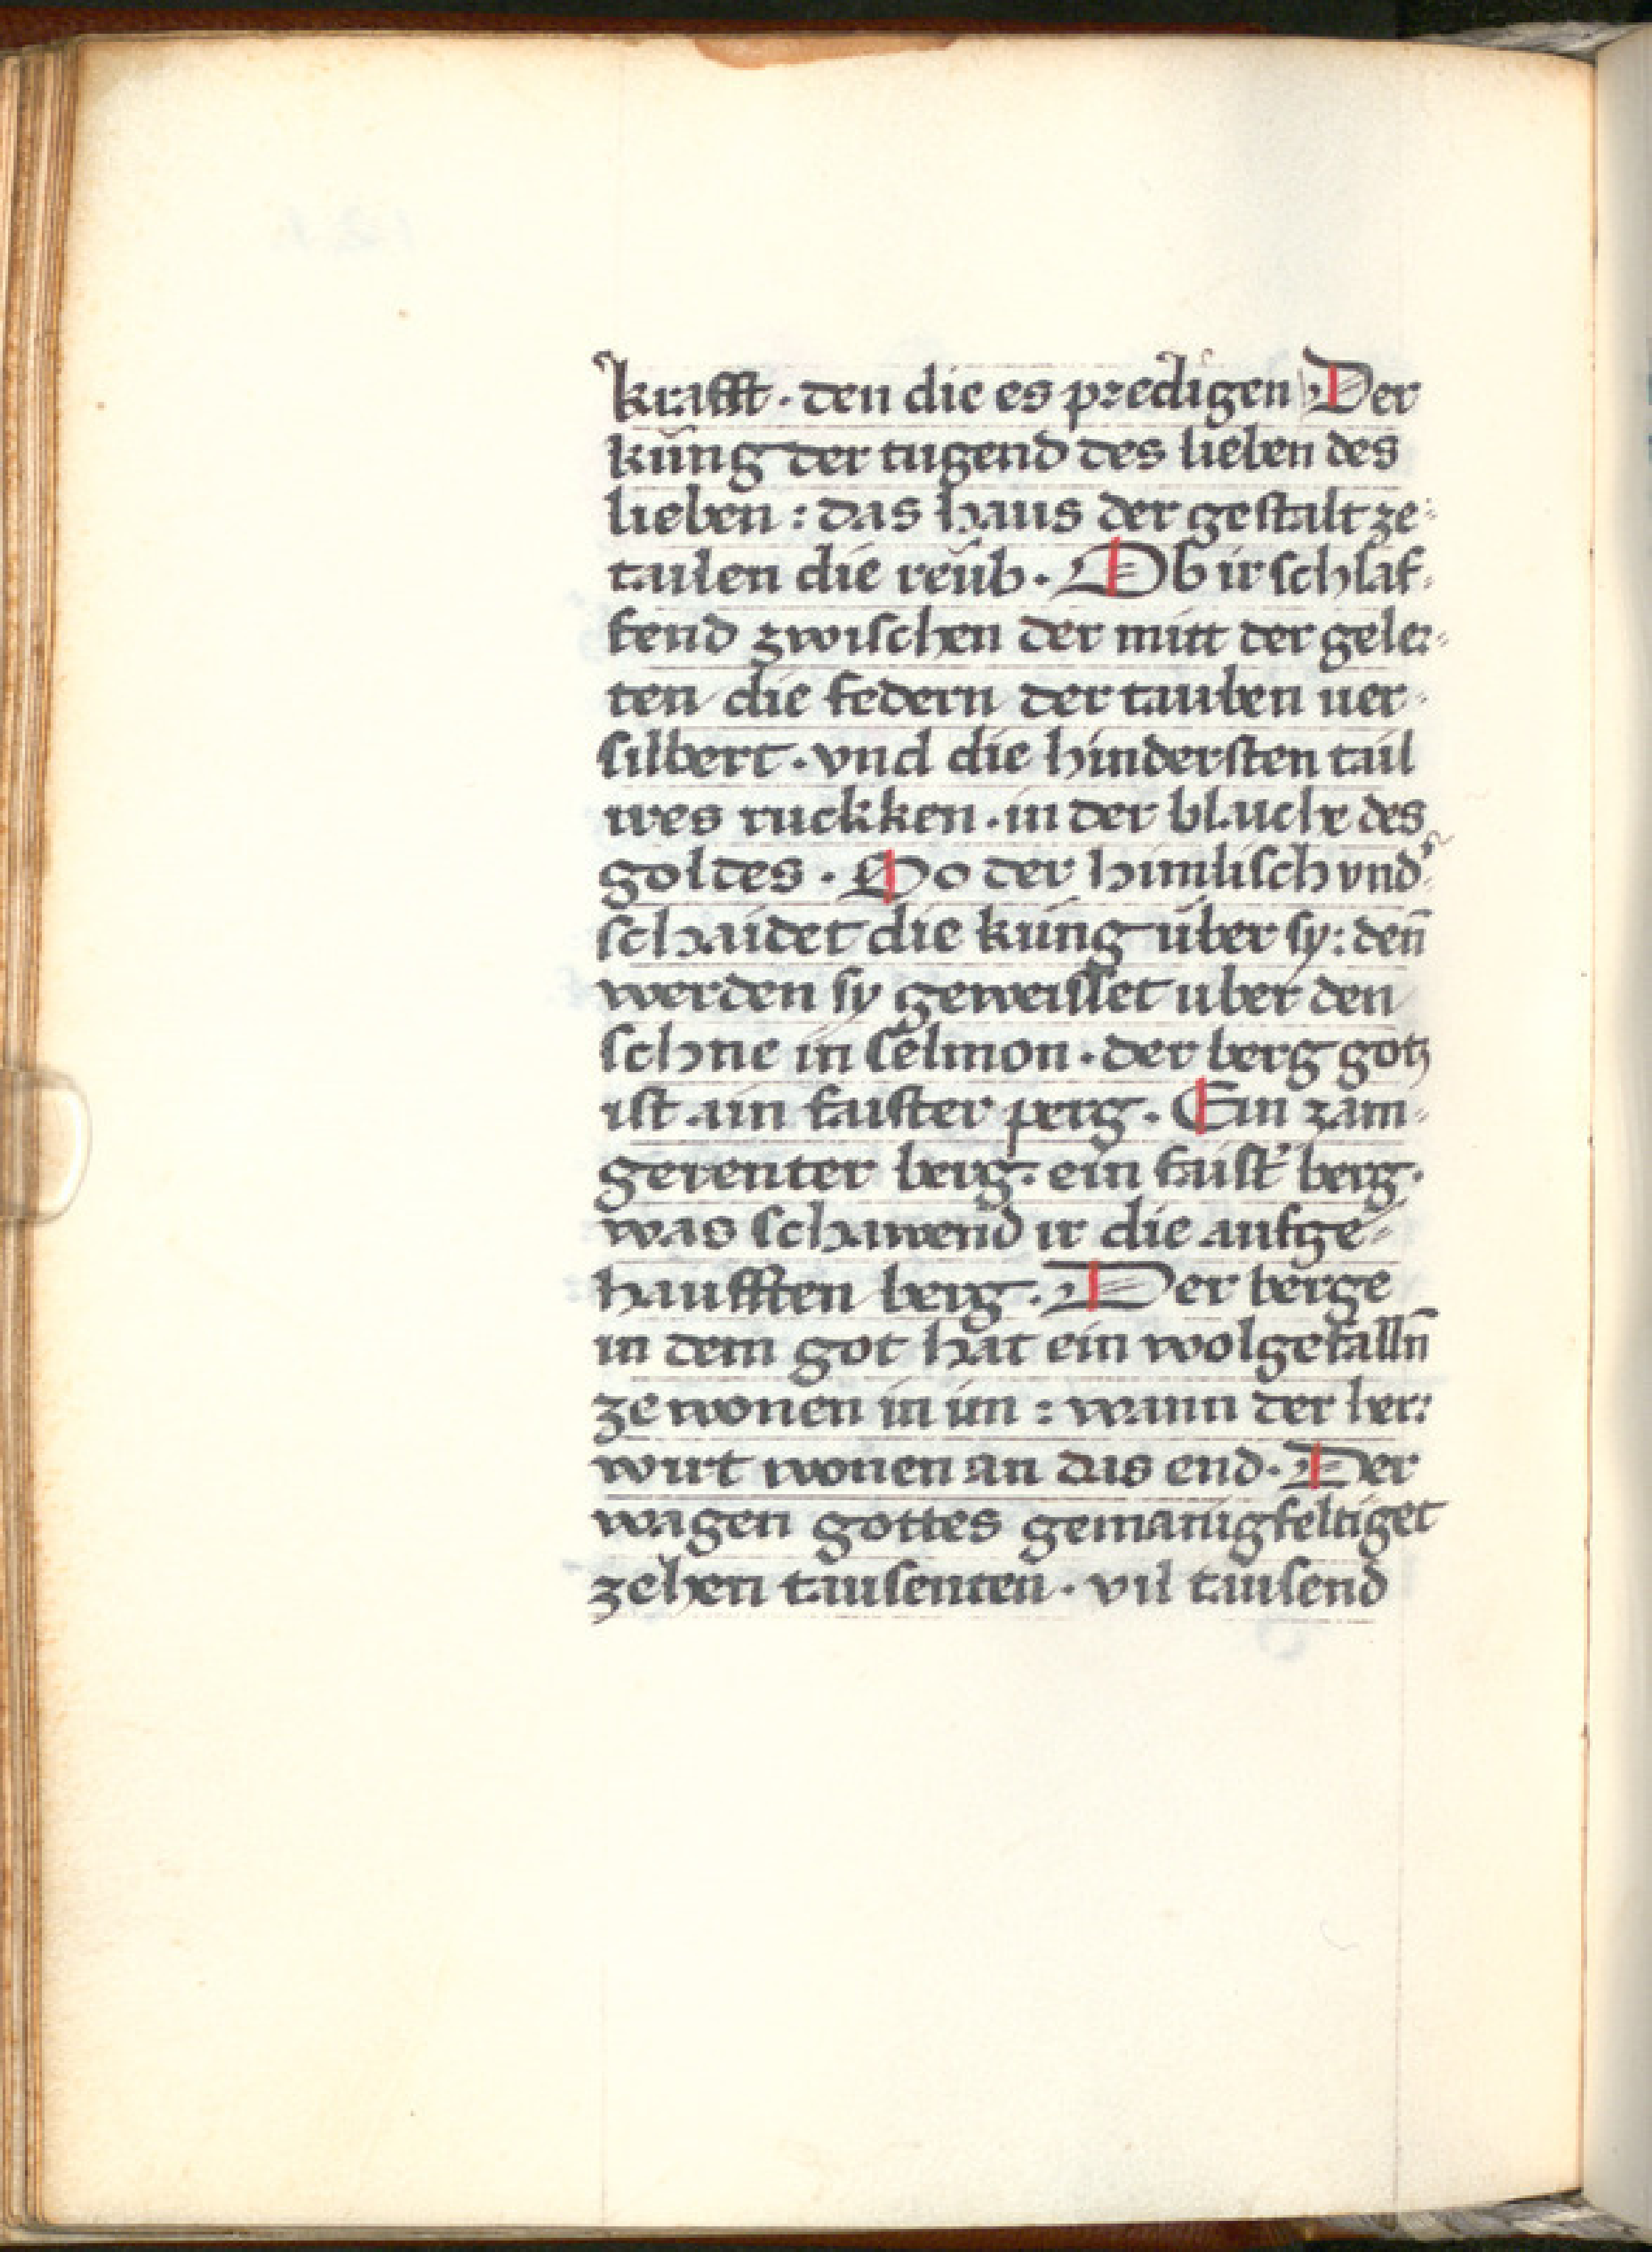 krafft · den die es predigen Der
küng der tugend des lieben des
lieben : das haus der gestalt ze⸗
tailen die reüb · Ob ir schlaf⸗
fend zwischen der mitt der geler⸗
ten die federn der tauben uer⸗
silbert · vnd die hindersten tail
ires ruckken · in der blaich des
goldes · So der himlisch vnd⸗
schaidet die küng über sy : den̄
werden sy geweisset uber den
schne in selmon · der berg gotz
ist ain faister perg · Ein zam⸗
gerenter berg · ein faist berg ·
was schawend ir die aufge⸗
haufften berg · Der berge
in dem got hat ein wolgefalln̄
ze wonen in im : wann der her:
wirt wonen an das end · Der
wagen gottes gemanigfeltiget
zehen tausenten · vil tausend